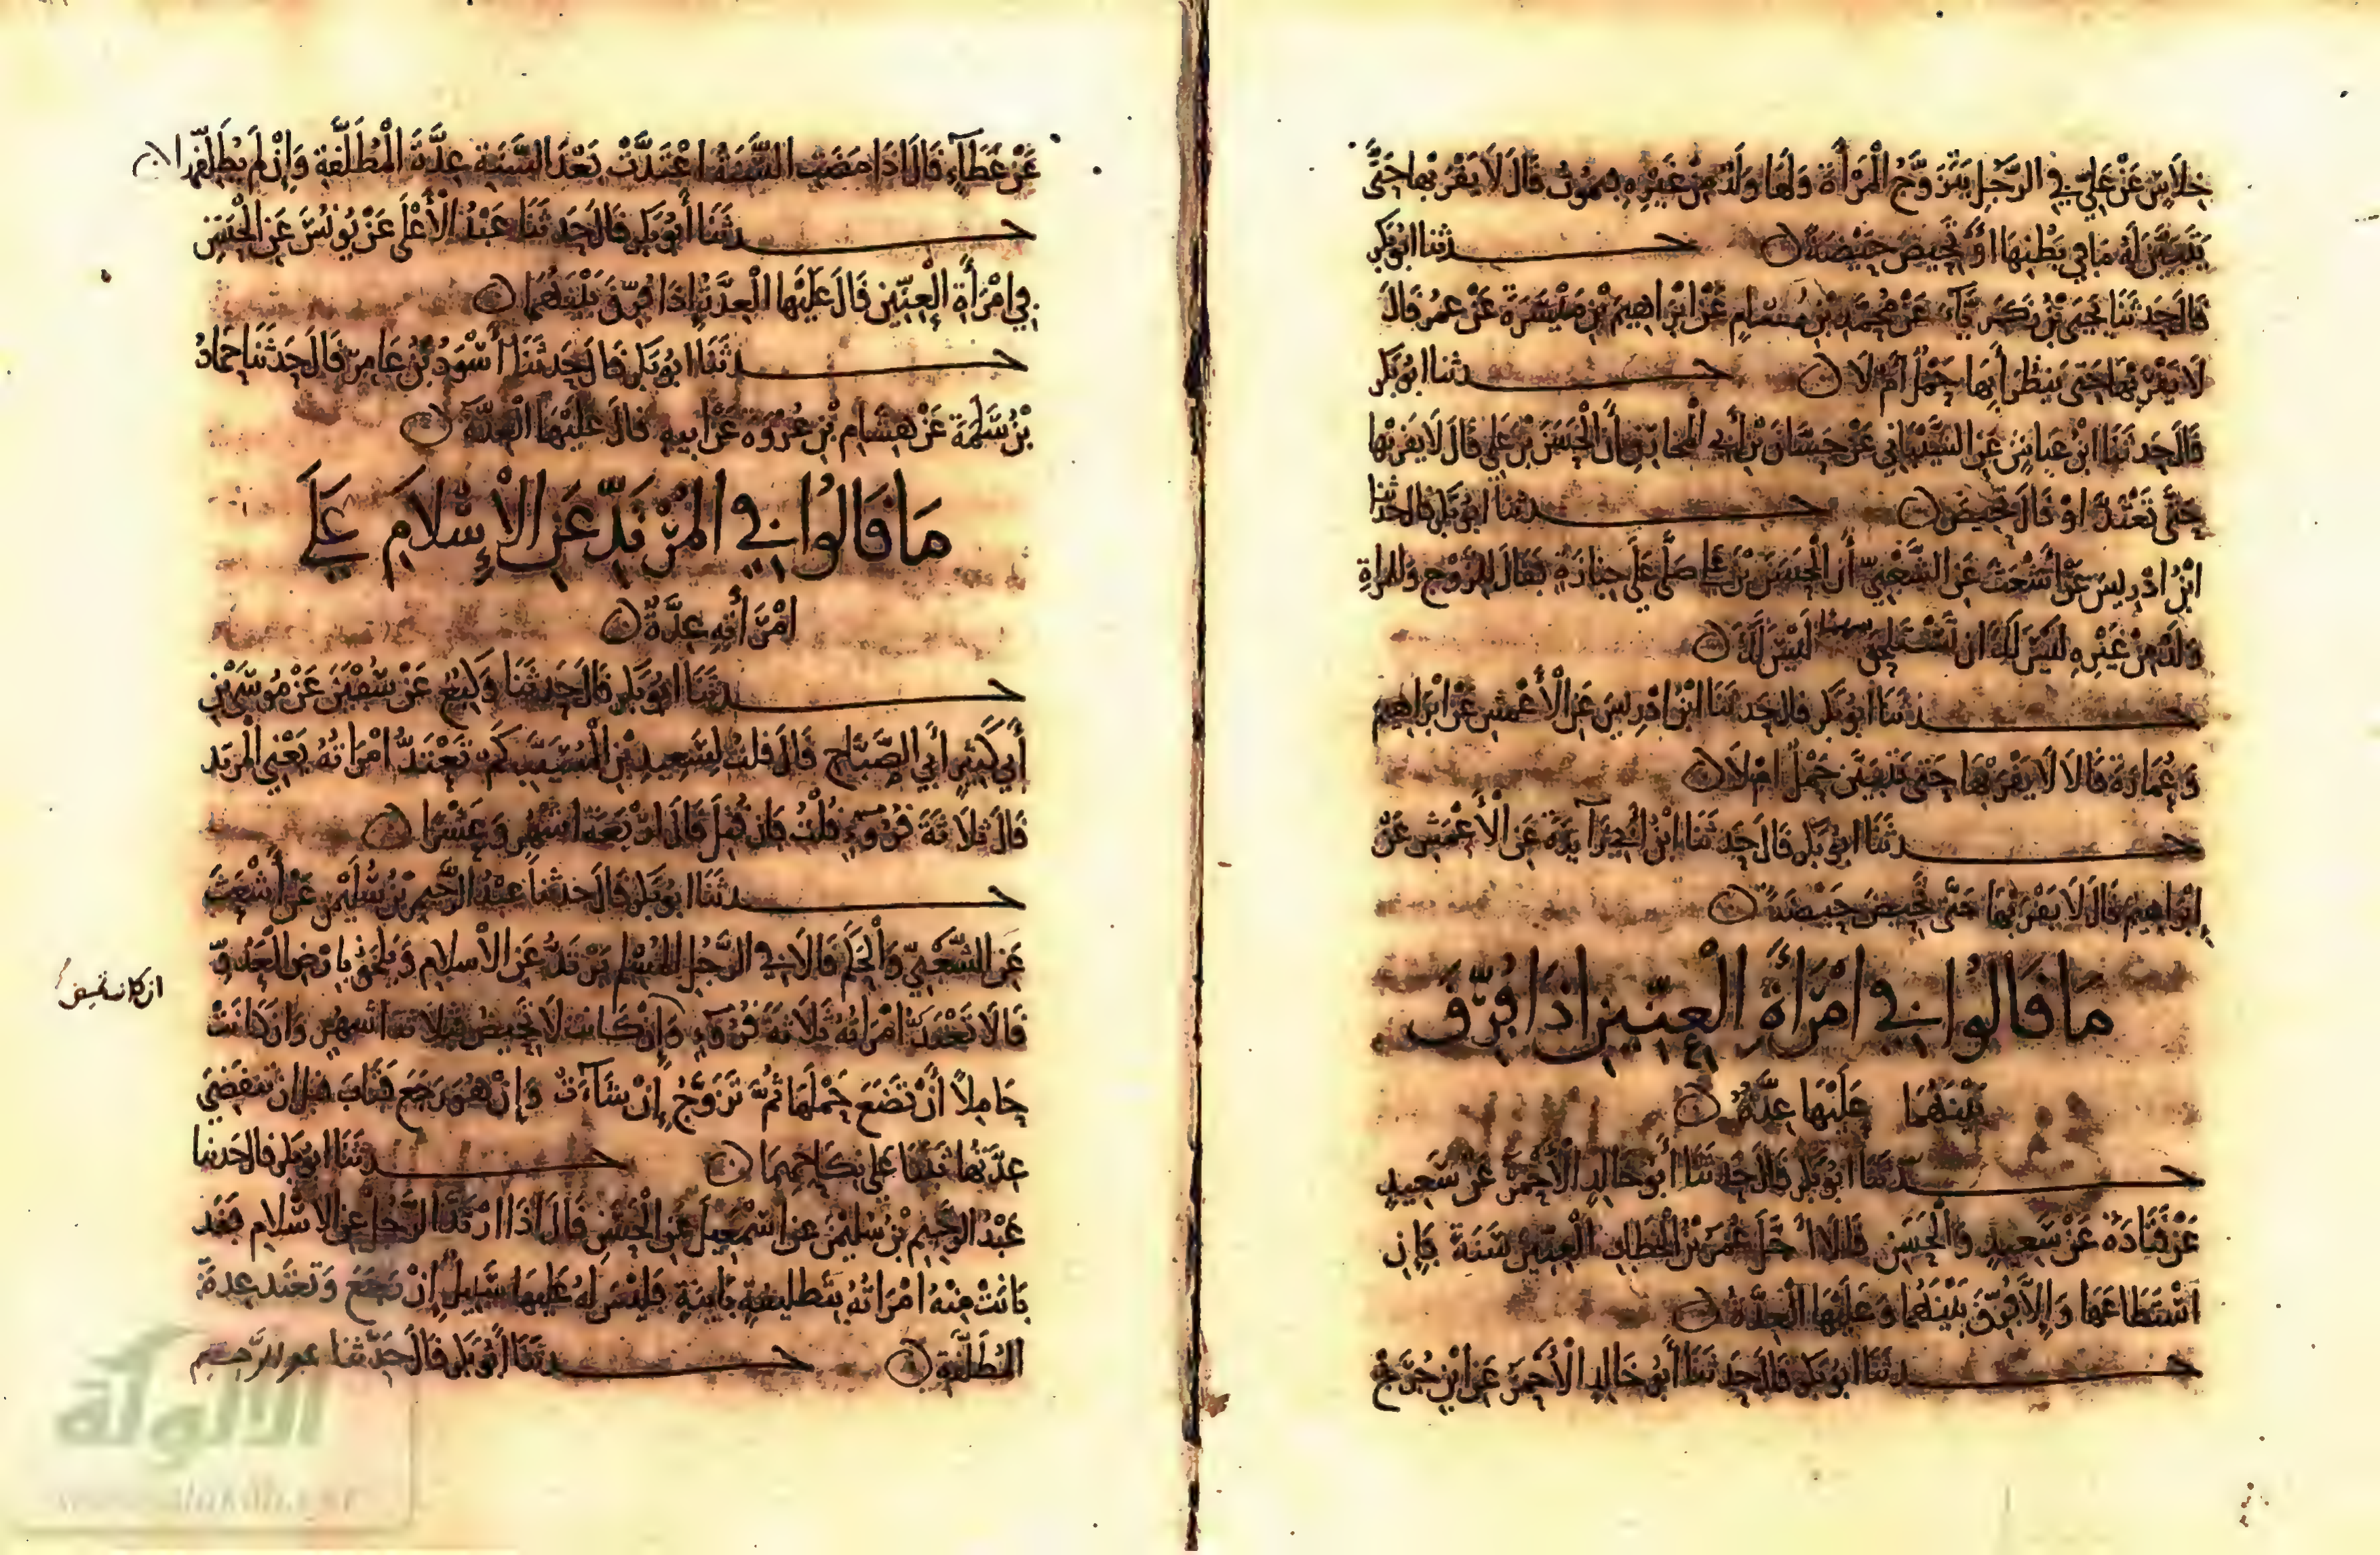 خِلَاسٍ عَنْ عَلِيٍّ فِي الرَّجُلِ يَتَزَوَّجُ الْمَرْأَةَ وَلَهَا وَلَدٌ مِنْ غَيْرِهِ فيموتُ قَالَ لَا يَقْرَبُهَا حَتَّى
يَتَبَيَّنَ لَهُ مَا فِي بَطْنِهَا أَوْ تَحِيضَ حَيْضَةً ۞ حدثنا ابو بكر
قَالَ حَدثَنَا يَحْيَى بْنُ زَكَرِيَّآءَ عَنْ مُحَمَّدِ بْنِ سَالِمٍ عَنْ إبْرَاهِيمَ بْنِ مَيْسَرَةَ عَنْ عُمَرَ قَالَ
لَا يَقْرَبُهَا حَتَّى يَنْظُرَ أَبِهَا حَمْلٌ أَمْ لَا ۞ حدثنا ابو بكر
قَالَ حَدثَنَا ابْنُ عَيَاشٍ عَنِ الشَّيْبَانِي عَنْ حَسَّانَ بْنِ أَبِي الْمُخَارِقِ أَنَّ الْحَسَنَ بْنَ عَلِي قَالَ لَا يقربُهَا
حَتَّى تَعْتَدَّ اوْ قَالَ تَحِيض ۞ حدثنا ابو بكر قال حدثنا
ابْنُ ادْرِيسَ عَنْ أَشْعَثَ عَنِ الشَّعْبِيِّ أَن الْحَسَنَ بْنَ عَلِي صَلَّى عَلَى جِنَازَةٍ فَقَالَ لِلزَّوْج وَلِلمراةِ
وَلَدٌ مِنْ غَيْرِهِ لَيْسَ لَكَ ان تَسْتَلْحِقَ سهما لَيْسَ لَكَ ۞
حدثَنَا ابُو بَكْر قال حَدثَنَا ابْنُ ادْرِيسَ عَنِ الْأَعْمَشِ عَنْ ابْرَاهِيمَ
وَعُمَارَةَ قَالَا لَا يَقْرَبُهَا حَتَّى يَتَبَيَّنَ حَمْلٌ امْ لَا ۞
حدثَنَا ابُو بَكْر قَالَ حَدثَنَا ابْنُ أَبِي زَآيدَةَ عَنِ الْأَعْمَشِ عَنْ
إبْرَاهِيمَ قَالَ لَا يَقْرَبُهَا حَتَّى تَحِيضَ حَيْضَةً ۞
مَا قَالُوا فِي امْرَأَةِ الْعِنِّينِ اذَا فُرِّقَ
بَيْنَهُمَا عَلَيْهَا عِدَّةٌ ۞
حدثَنَا ابُو بَكْر قَالَ حَدثَنَا أَبُو خَالِدٍ الْأَحْمَرُ عَنْ سَعِيدٍ
عَنْ قَتَادَةَ عَنْ سَعِيدٍ وَالْحَسَنِ قَالَا أَجَّلَ عُمَرُ بْنُ الْخَطَّابِ الْعِنِّينَ سَنَةً فَإِنِ
اسْتَطَاعَهَا وَإِلَّا فُرِّقَ بَيْنَهُمَا وَعَلَيْهَا الْعِدَّةُ ۞
حدثَنَا ابُو بَكْر قَالَ حَدثَنَا أَبُو خَالِدٍ الْأَحْمَرُ عَنِ ابْنِ جُرَيْجٍ
عَنْ عَطَآءٍ قَالَ اذَا مَضَتِ السَّنَةُ اعْتَدَّتْ بَعْدَ السَّنَةِ عِدَّةَ الْمُطَلَّقَةِ وَإِنْ لَمْ يُطَلِّقْهَا ۞
حدثَنَا أَبُو بَكْر قَالَ حَدثَنَا عَبْدُ الْأَعْلَى عَنْ يُونُسَ عَنِ الْحَسَنِ
فِي امْرَأَةِ الْعِنِّينِ قَالَ عَلَيْهَا الْعِدَّةُ إذَا فُرِّقَ بَيْنَهُمَا ۞
حدثَنَا ابُو بَكْر قَالَ حَدثَنَا أَسْوَدُ بْنُ عَامِرٍ قَالَ حَدثَنَا حَمَّادُ
بْنُ سَلَمَةَ عَنْ هِشَامِ بْنِ عُرْوَةَ عَنْ ابِيهِ قَالَ عَلَيْهَا الْعِدَّةُ ۞
مَا قَالُوا فِي الْمُرْتَدِّ عَنِ الْإِسْلَامِ عَلَى
امْرَأَتِهِ عِدَّةٌ ۞
حدثَنَا ابُو بَكْر قَالَ حَدثَنَا وَكِيعٌ عَنْ سُفْيٰنَ عَنْ مُوسَى بْنِ
أَبِي كَثِيرٍ أَبِي الصَّبَّاحِ قَالَ قلْتُ لِسَعِيدِ بْنِ الْمُسَيَّبِ كَمْ تَعْتَدُّ امْرَأتُهُ يَعْنِي الْمُرْتَد
قَالَ ثَلَاثَةَ قُرُوءٍ قُلْتُ فَإن قُتِلَ قَالَ ارْبَعَةَ اشْهُرٍ وَعَشْرًا ۞
حدثَنَا ابُو بَكْر قَالَ حدثنَا عبْدُ الرَّحِيمِ بْنُ سُلَيْمٰنَ عَنْ أَشْعَثَ
عَنِ الشَّعْبِيِّ وَالْحَكَمِ قَالَا فِي الرَّجُلِ الْمُسْلِمِ يَرْتَدُّ عَنِ الْاسْلامِ وَيَلْحَقُ بِأرْضِ الْعَدُوِّ
قَالَا تَعْتَدُّ امْرَأتُهُ ثَلَاثَةَ قُرُوءٍ وَإِنْ كَانت لَا تَحِيضُ فثلاثة اشْهُرٍ وَإِن كَانَتْ
ان كانت تحيض
حَامِلاً أَنْ تَضَعَ حَمْلَهَا ثُمَّ تَزَوَّجُ إِنْ شَآءَتْ وَإِنْ هُوَ رَجَعَ فَتَابَ قبل ان تنقَضِيَ
عِدَّتُهَا ثَبَتَا عَلَى نِكَاحِهِمَا ۞ حدثَنَا ابو بكر قال حدثنا
عَبْدُ الرَّحِيمِ بْنُ سُلَيْمٰنَ عَنْ اسْمٰعِيلَ عَنِ الْحَسَنِ قَالَ اذَا ارْتَدَّ الرَّجُلُ عَنِ الاسْلَامِ فَقَد
بَانَتْ مِنْهُ امْرَأتُهُ بِتَطْلِيقَةٍ بَايِنَةٍ فَلَيْسَ لَهُ عَلَيْهَا سَبِيلٌ إِنْ رَجَعَ وَتَعْتَد عِدةَ
الْمُطَلَّقَةِ ۞ حدثَنَا أَبُو بَكْر قَالَ حَدَّثَنَا عبد الرَّحيم
الألوكة